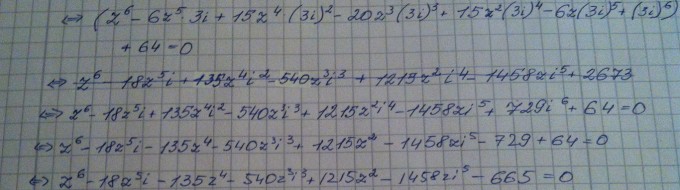 ⇔ (z⁶ - 6z⁵·3i + 15z⁴·(3i)² - 20z³(3i)³ + 15z²(3i)⁴ - 6z(3i)⁵ + (3i)⁶)
+ 64 = 0
⇔ z⁶ - 18z⁵i + 135z⁴i² - 540z³i³ + 1215z²i⁴ - 1458zi⁵ + 2673
⇔ z⁶ - 18z⁵i + 135z⁴i² - 540zi³ + 1215z²i⁴ - 1458zi⁵ + 729i⁶ + 64 = 0
⇔ z⁶ - 18z⁵i - 135z⁴ - 540z³i³ + 1215z² - 1458zi⁵ - 729 + 64 = 0
⇔ z⁶ - 18z⁵i - 135z⁴ - 540z³i³ + 1215z² - 1458zi⁵ - 665 = 0